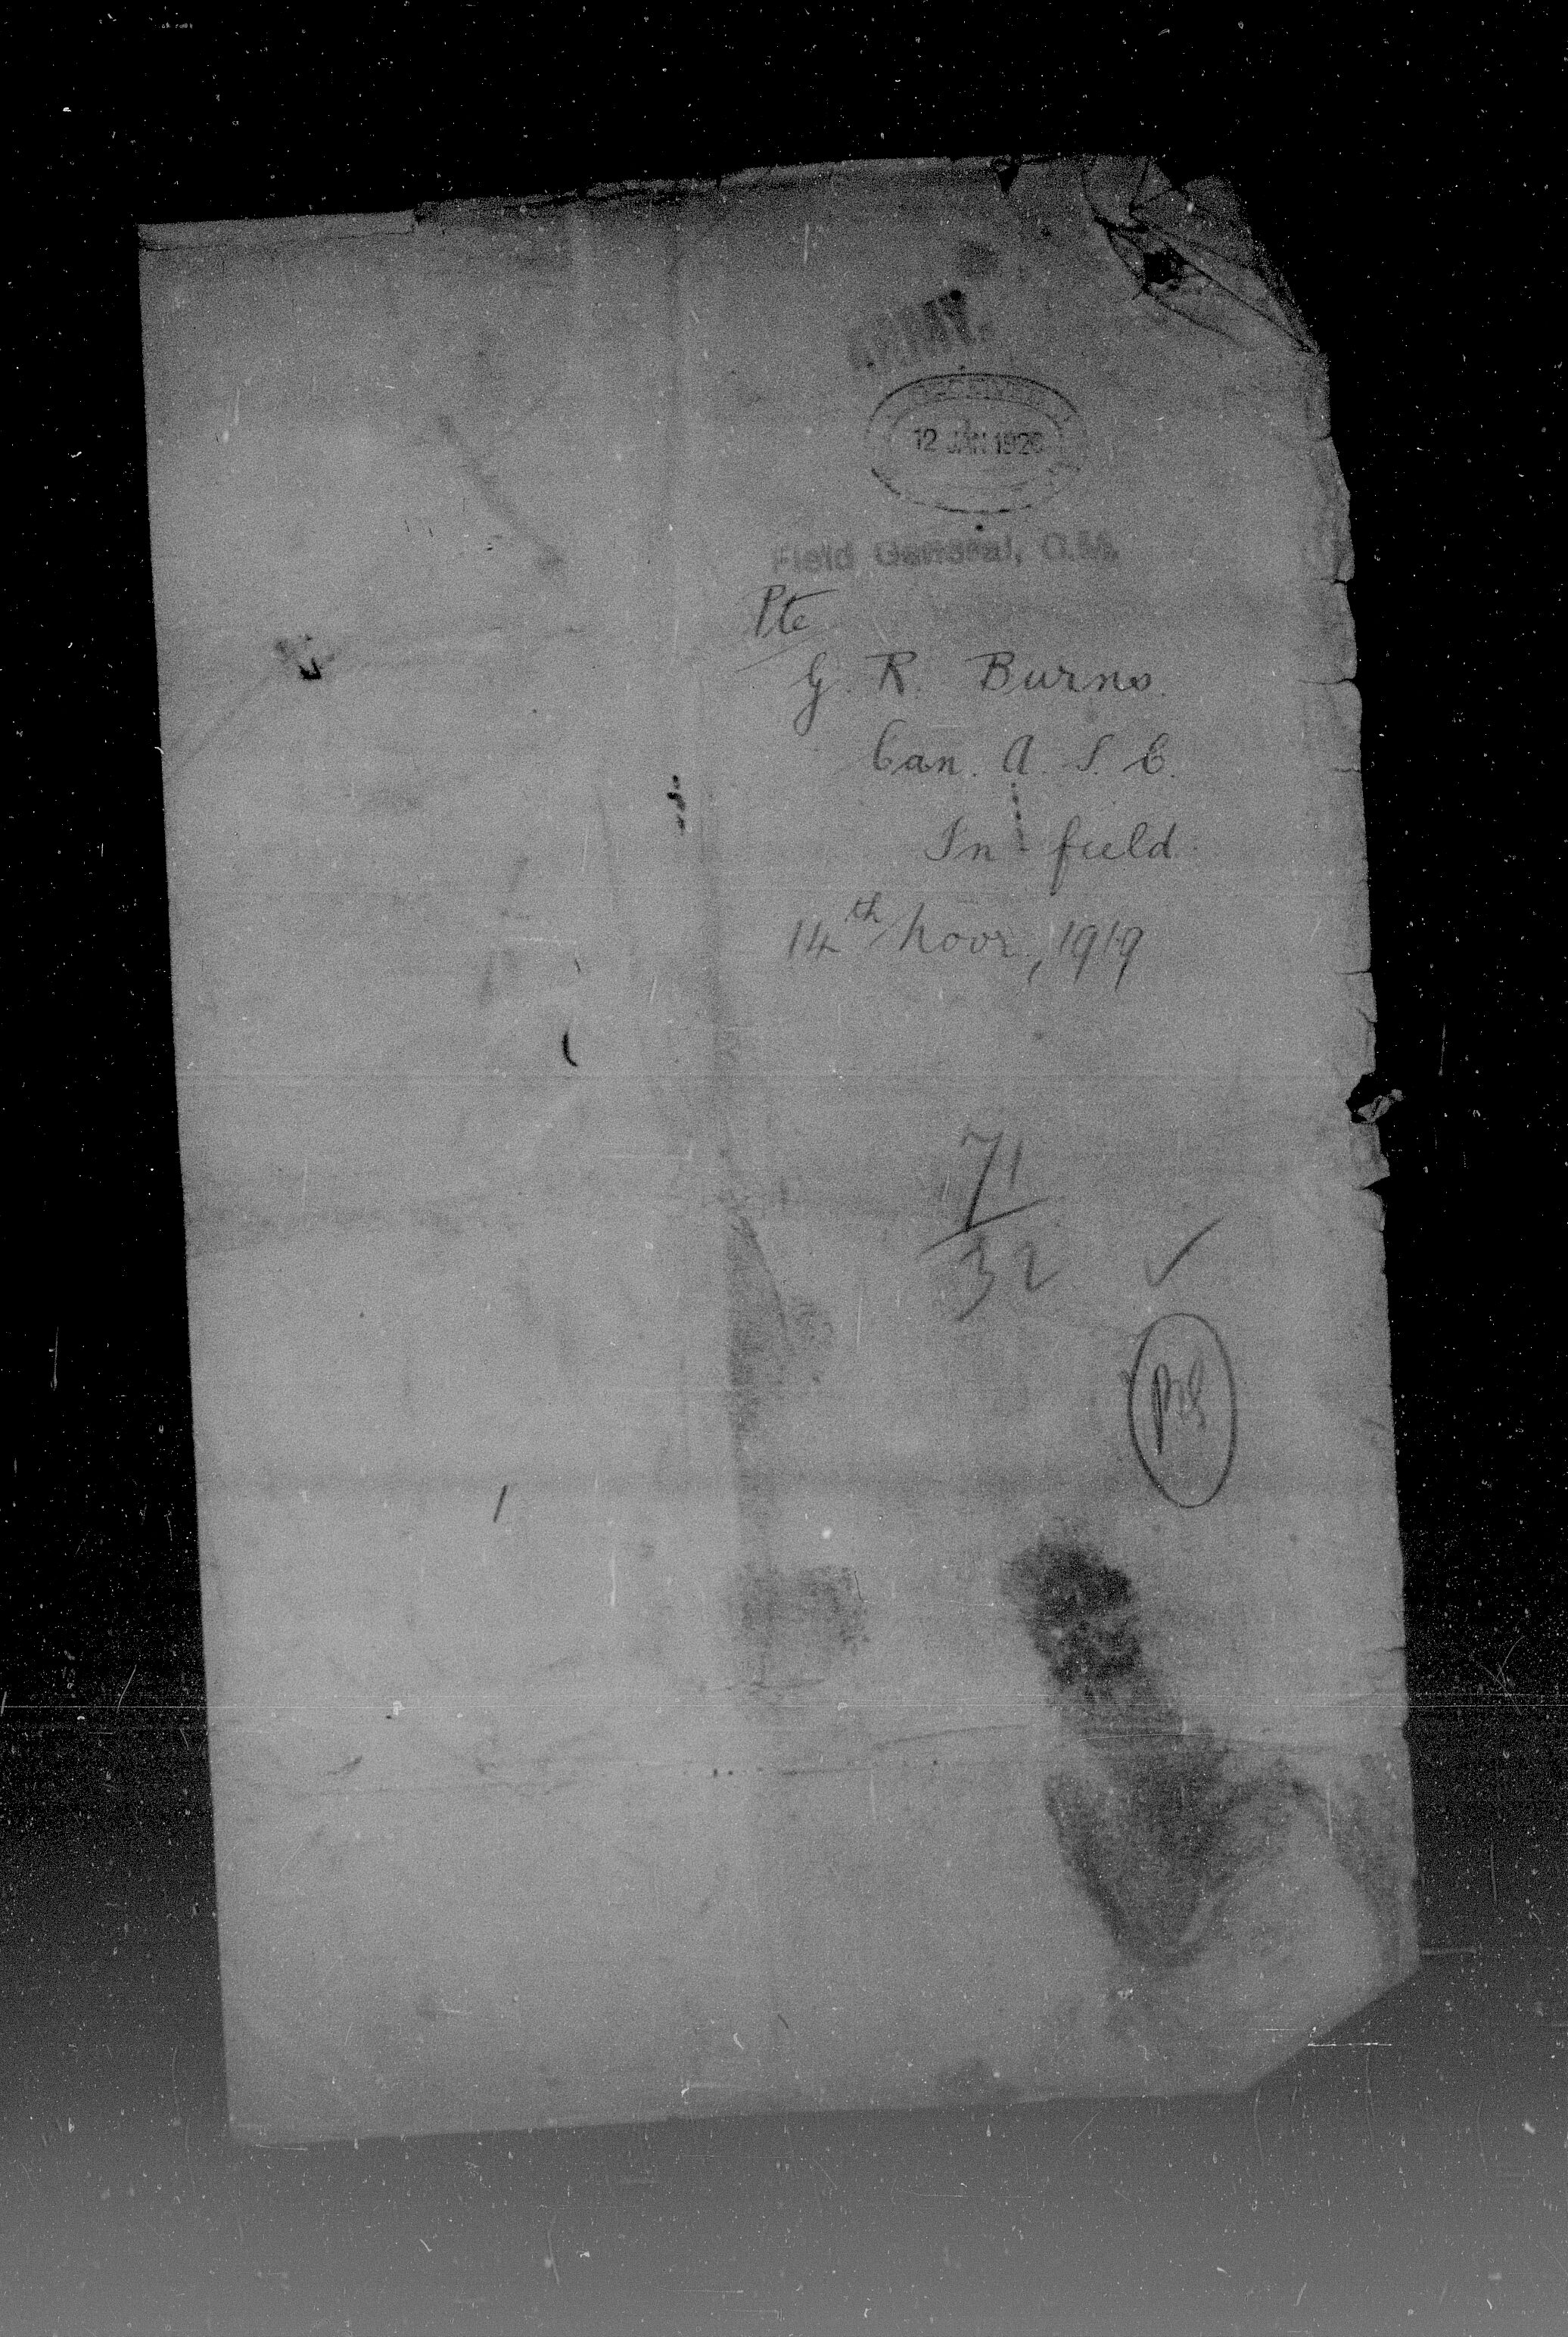 ARMY.
RECEIVED
12 JAN 1920
Field General, C.M.
Pte
G. R. Burns.
Can. A. S. C.
In field.
14th Novr., 1919
71
32